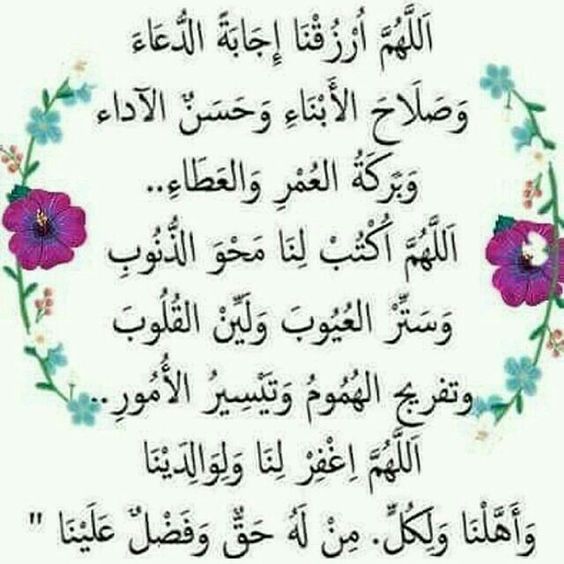 اَللَّهُمَّ اُرْزُقْنَا إِجَابَةً الدُّعَاءَ
وَصَلَاحَ الأَبْنَاءِ وَحَسَنٌ الآداء
وَبَرَكَةُ العُمْرِ وَالعَطَاءِ..
اَللَّهُمَّ اُكْتُبْ لِنَا مَحْوَ الذُّنُوبِ
وَسَتِّرْ العُيُوبَ وَلَيِّنْ القُلُوبَ
وتفريج الهُمُومُ وَتَيْسِيرُ الأُمُورِ..
اَللَّهُمَّ اِغْفِرْ لِنَا وَلِوَالِدَيْنَا
وَأَهَّلْنَا وَلِكُلٍّ. مِنْ لَهُ حَقٌّ وَفَضْلٌ عَلَيْنَا "